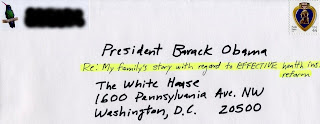 President Barack Obama
Re: My family's story with regard to EFFECTIVE health ins. reform
The White House
1600 Pennsylvania Ave. NW
Washington, D.C. 20500